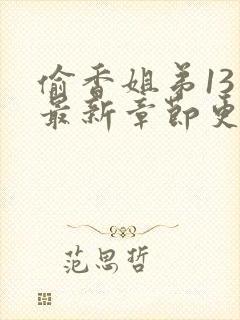 偷香姐弟13
最新章节更
范思哲